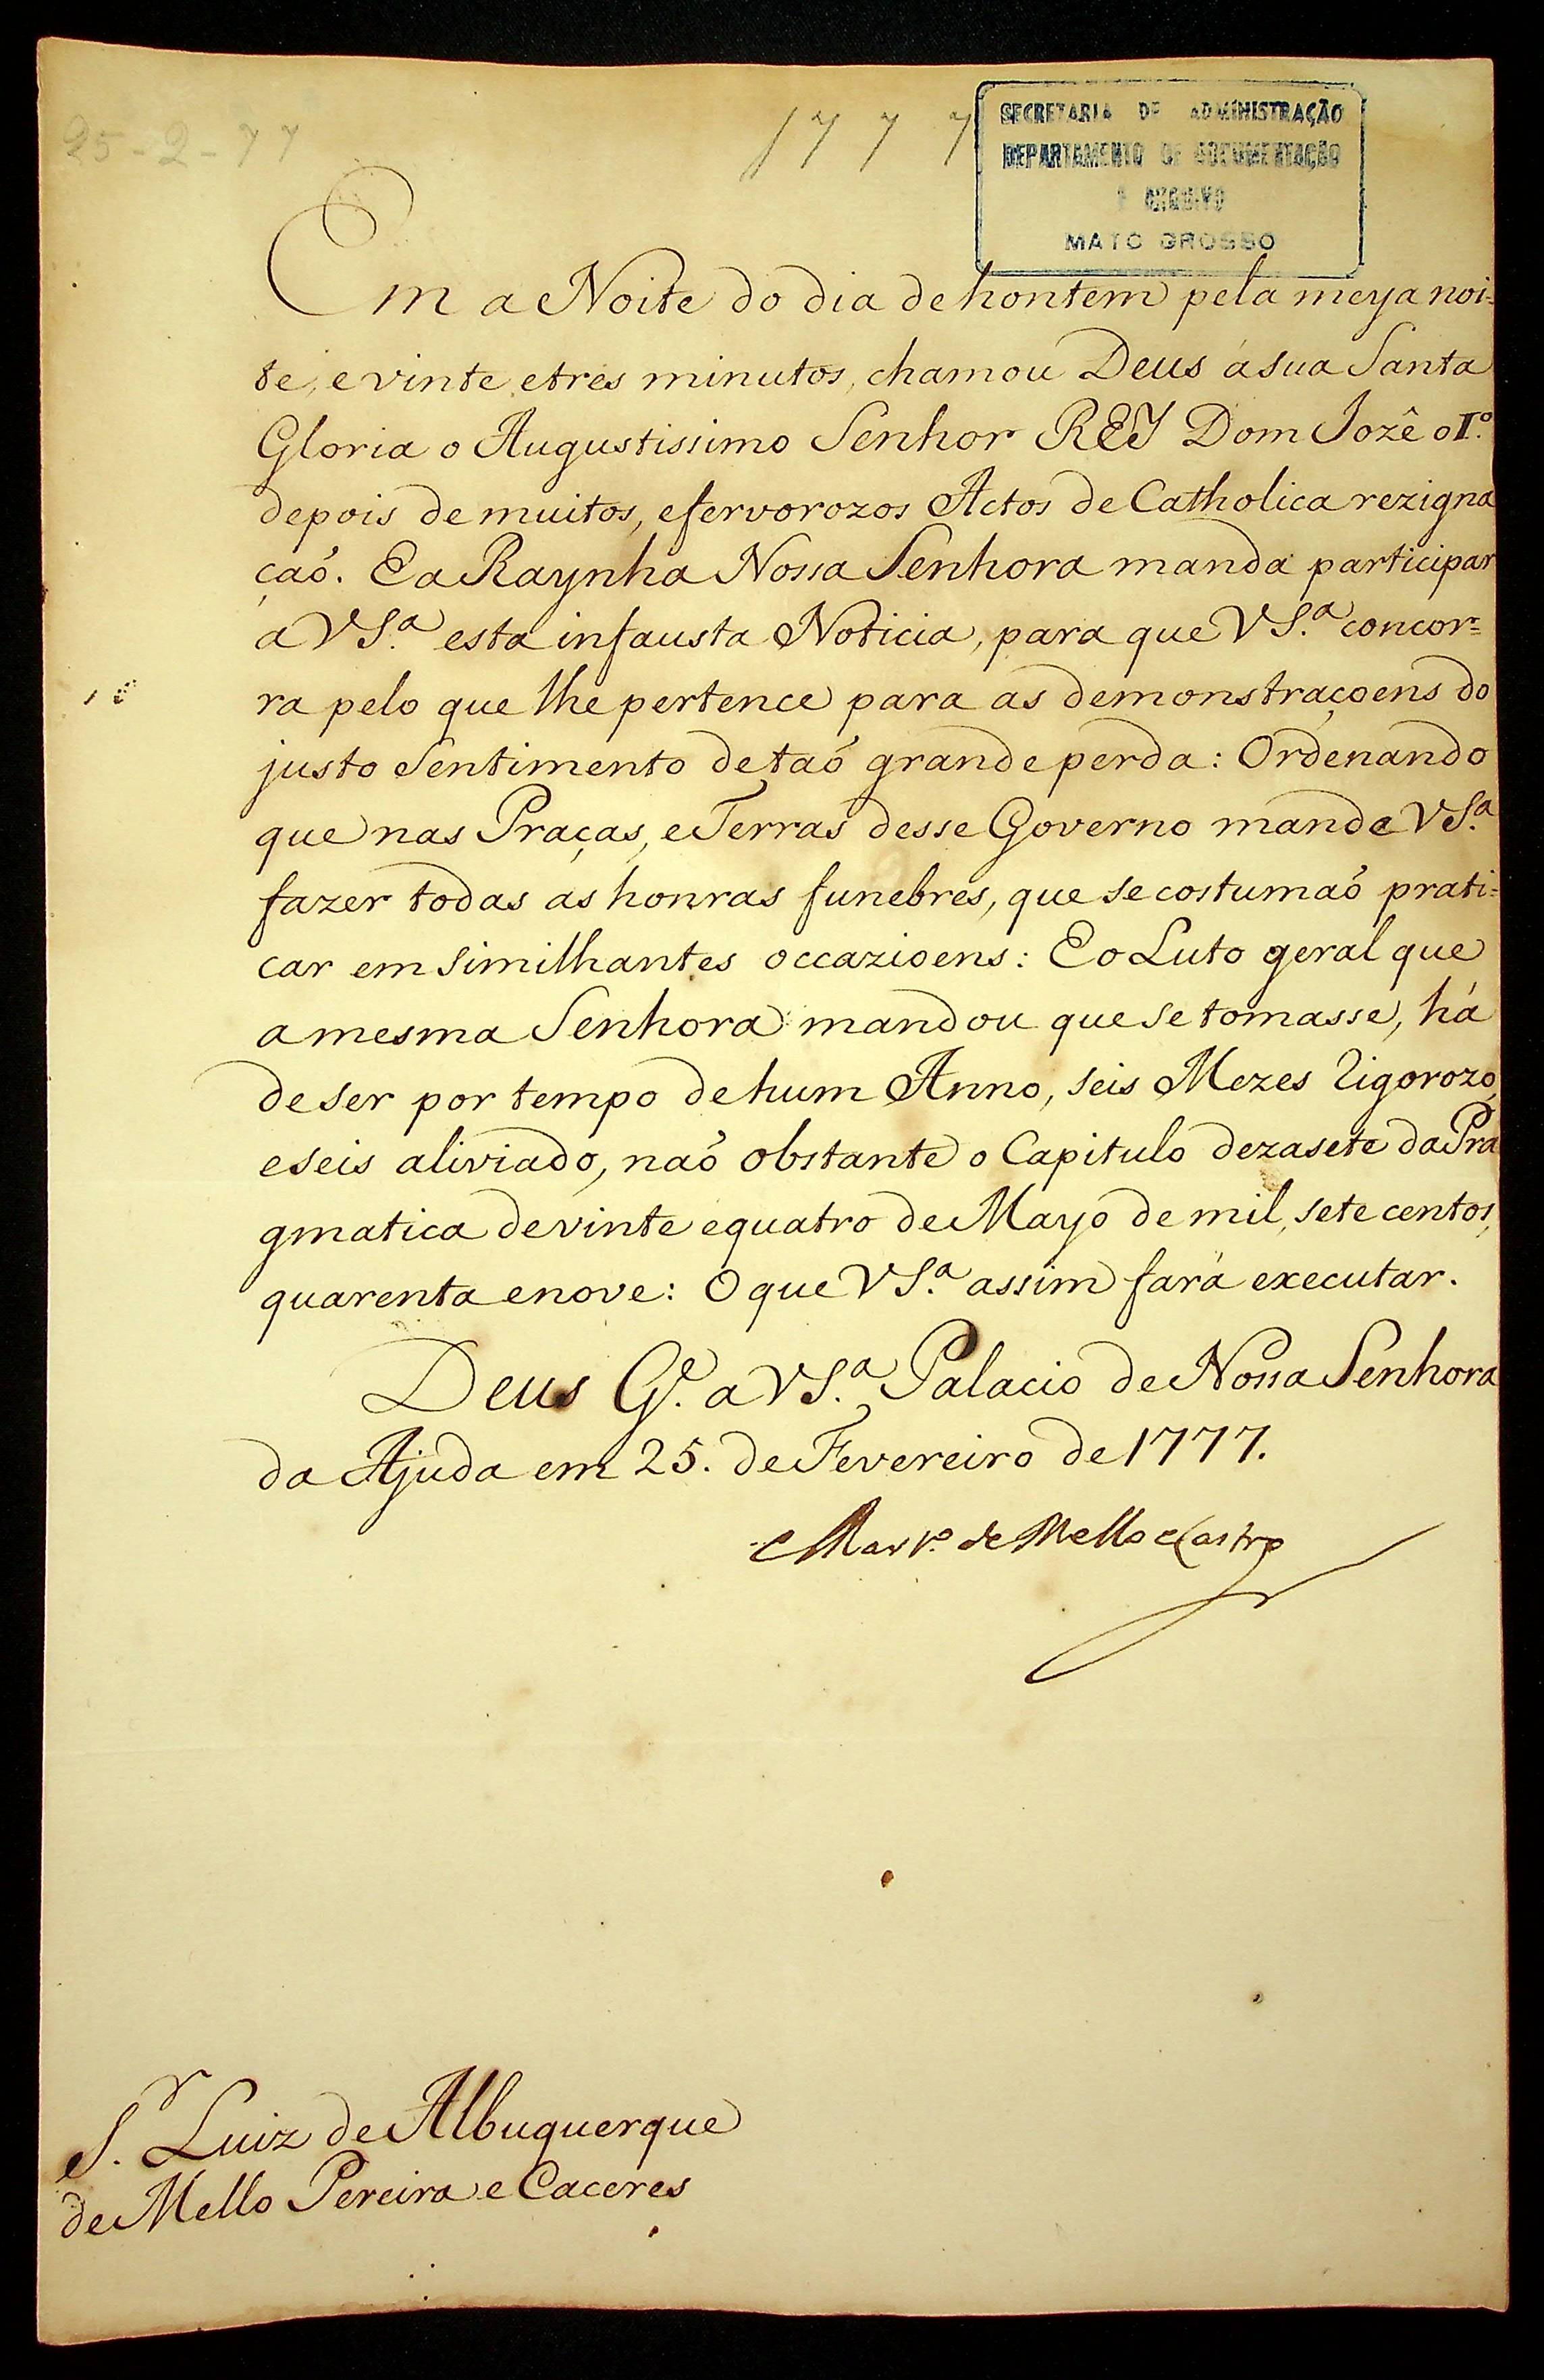 25-2-77
1777
SECRETARIA DE ADMINISTRAÇÃO
DEPARTAMENTO DE DOCUMENTAÇÃO
E ARQUIVO
MATO GROSSO
Em a Noite do dia de hontem pela meya noi-
te, e vinte e tres minutos, chamou Deus á sua Santa
Gloria o Augustissimo Senhor REY Dom Jozê o I.º
depois de muitos, e fervorozos Actos de Catholica rezigna
çaõ. E a Raynha Nossa Senhora manda participar
a VS.ª esta infausta Noticia, para que VS.ª concor=
ra pelo que lhe pertence para as demonstraçoens do
justo Sentimento de taõ grande perda: Ordenando
que nas Praças, e Terras desse Governo mande VS.ª
fazer todas as honras funebres, que se costumaõ prati=
car em similhantes occazioens: E o Luto geral que
a mesma Senhora mandou que se tomasse, há
de ser por tempo de hum Anno, seis Mezes rigorozo,
e seis aliviado, naõ obstante o Capitulo dezasete da Pra
gmatica de vinte e quatro de Mayo de mil, sete centos,
quarenta e nove: O que VS.ª assim fará executar.
Deus G.e a VS.ª Palacio de Nossa Senhora
da Ajuda em 25. de Fevereiro de 1777.
Mart.º de Mello e Castro
S.r Luiz de Albuquerque
de Mello Pereira e Caceres